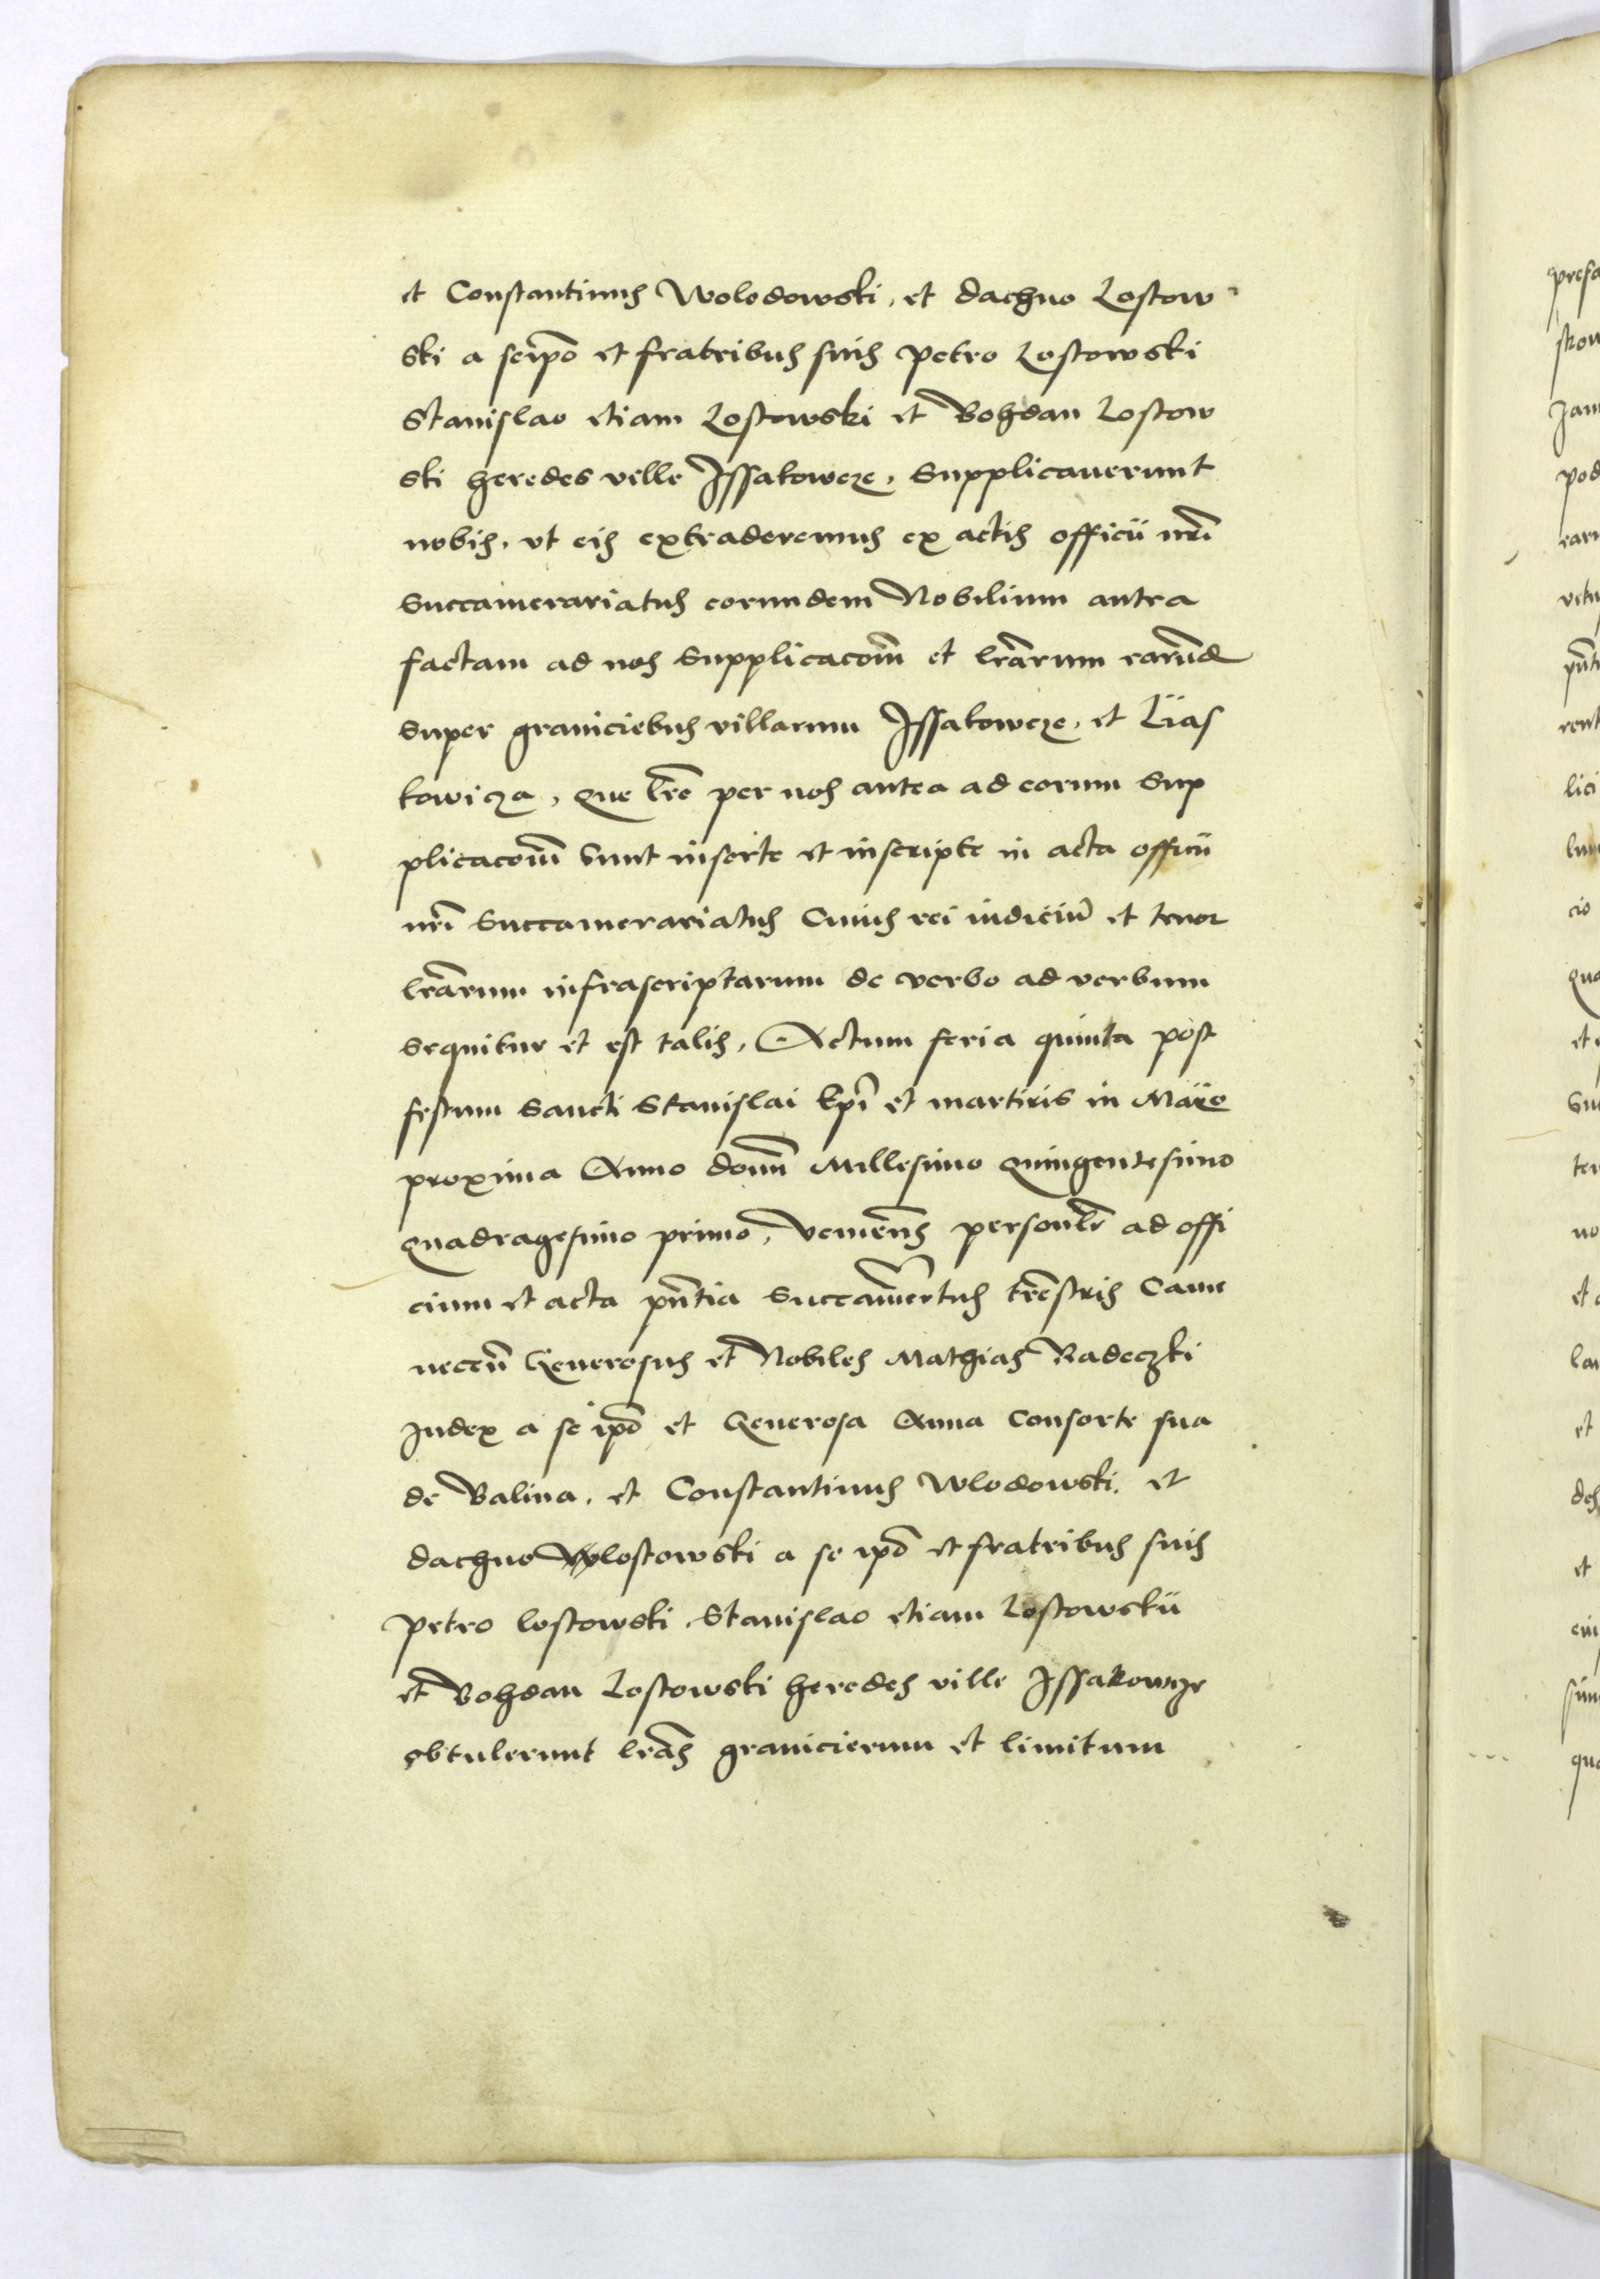 et Constantinus Wolodowski, et dachno Lostow
ski a seipo et fratribus suis petro Lostowski
Stanislao etiam Lostowski et Bohdan Lostow
ski heredes ville Issakowcze, Supplicauerunt
nobis, vt eis extraderemus ex actis officii nri
Succamerariatus eorundem Nobilium antea
factam ad nos Supplicacom et lrarum earund
Super graniciebus villarum Issakowcze, et Lias
kowicza, que lre per nos antea ad eorum Sup
plicacom sunt inserte et inscripte in acta officii
nri Succamerariatus Cuius rei indiciu et tenor
lrarum infrascriptarum de verbo ad verbum
Sequitur et est talis, Actum feria quinta post
festum Sancti Stanislai Epi et martiris in Maye
proxima Anno domi Millesimo quingentesimo
quadragesimo primo, veniens personlr ad offi
cium et acta pntia Succamertus trestris Came
necen Generosus et Nobiles Mathias Radeczki
Iudex a se ipo et Generosa Anna consorte sua
de Balina, et Constantinus Wlodowski, et
dachno Wlostowski a se ipo et fratribus suis
petro lostowski, Stanislao etiam Lostowskii
et Bohdan Lostowski heredes ville Issakowcze
obtulerunt lras granicierum et limitum